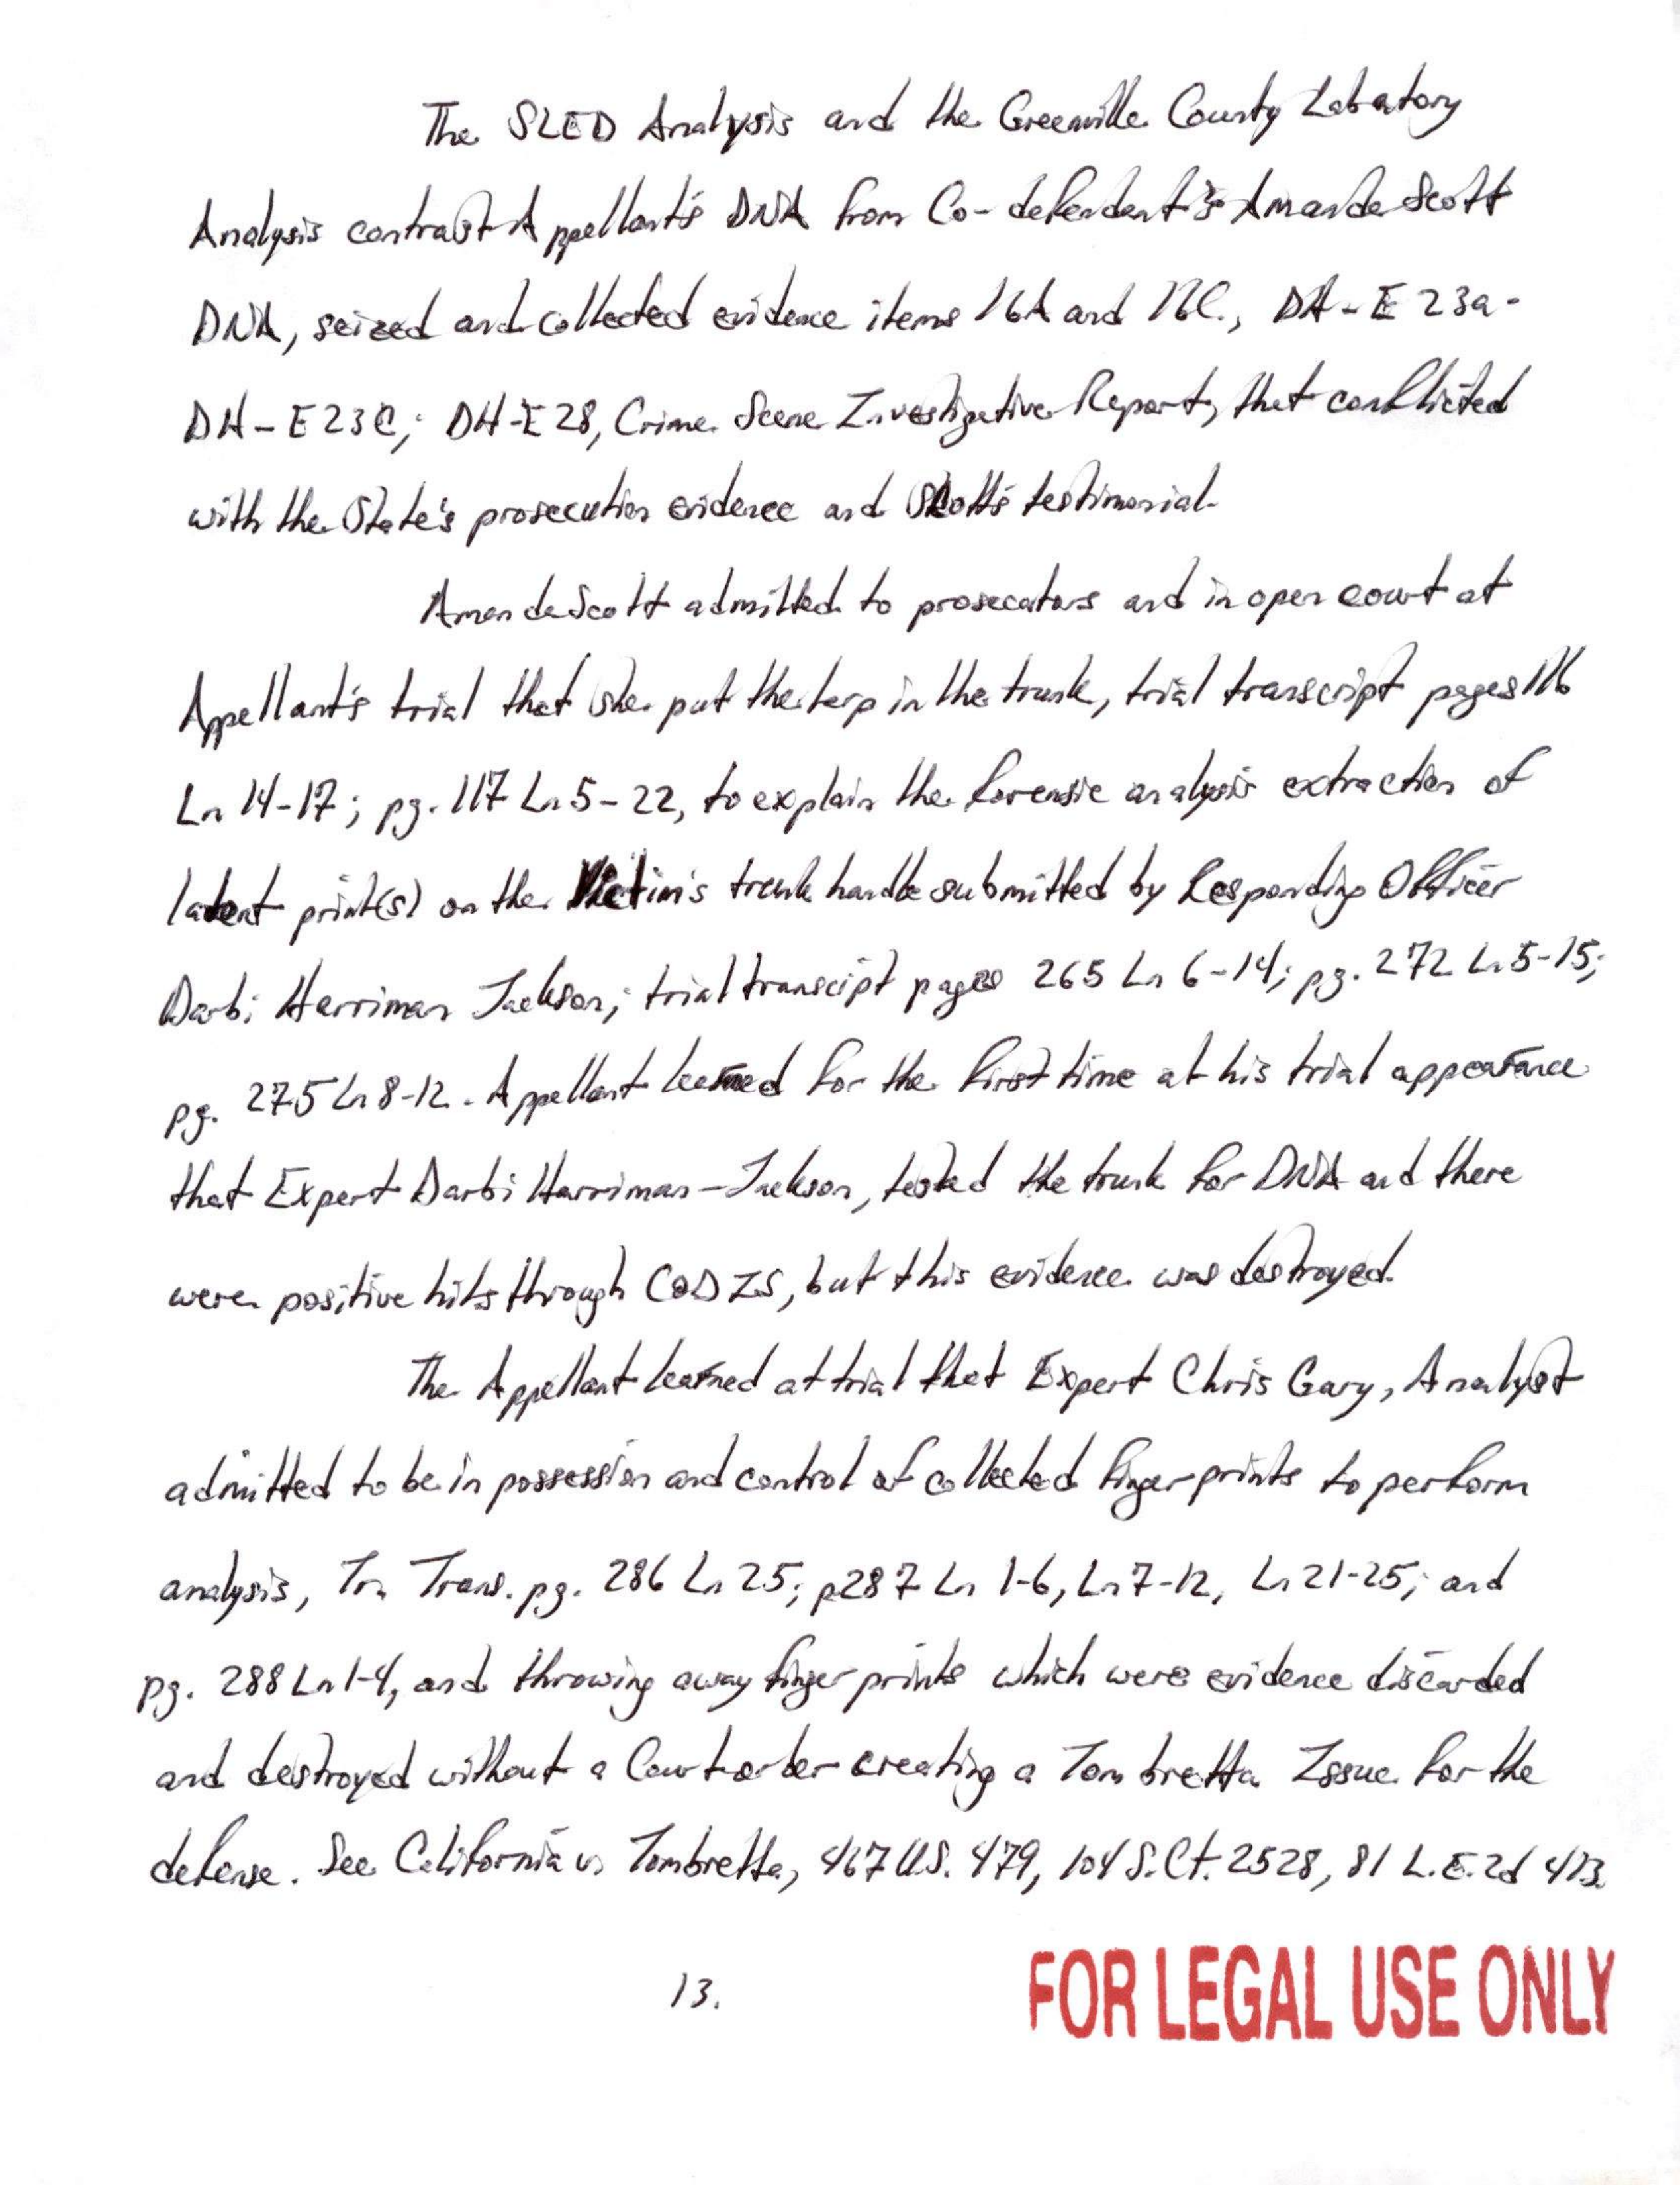 The SLED Analysis and the Greenville County Labatory
Analysis contrast Appellant's DNA from Co-defendent's Amanda Scott
DNA, seized and collected evidence items 16A and 16C., DH-E23a-
DH-E23C; DH-E28, Crime Scene Investigative Report, that conflicted
with the State's prosecution evidence and Scott's testimonial.
Amanda Scott admitted to prosecators and in open court at
Appellant's trial that she put the tarp in the trunk, trial transcript pages 116
Ln 14-17; pg. 117 Ln 5-22, to explain the forensic analysis extraction of
latent print(s) on the Victim's trunk handle submitted by Responding Officer
Darbi Harriman Jackson; trial transcript pages 265 Ln 6-14; pg. 272 Ln 5-15;
pg. 275 Ln 8-12. Appellant learned for the first time at his trial appearance
that Expert Darbi Harriman-Jackson, tested the trunk for DNA and there
were positive hits through CODIS, but this evidence was destroyed.
The Appellant learned at trial that Expert Chris Gary, Analyst
admitted to be in possession and control of collected fingerprints to perform
analysis, Tr. Trans. pg. 286 Ln 25; p287 Ln 1-6, Ln 7-12, Ln 21-25; and
pg. 288 Ln 1-4, and throwing away fingerprints which were evidence discarded
and destroyed without a Court order creating a Tombretta Issue for the
defense. See California vs Tombretta, 467 U.S. 479, 104 S.Ct. 2528, 81 L.E.2d 413.
13.
FOR LEGAL USE ONLY